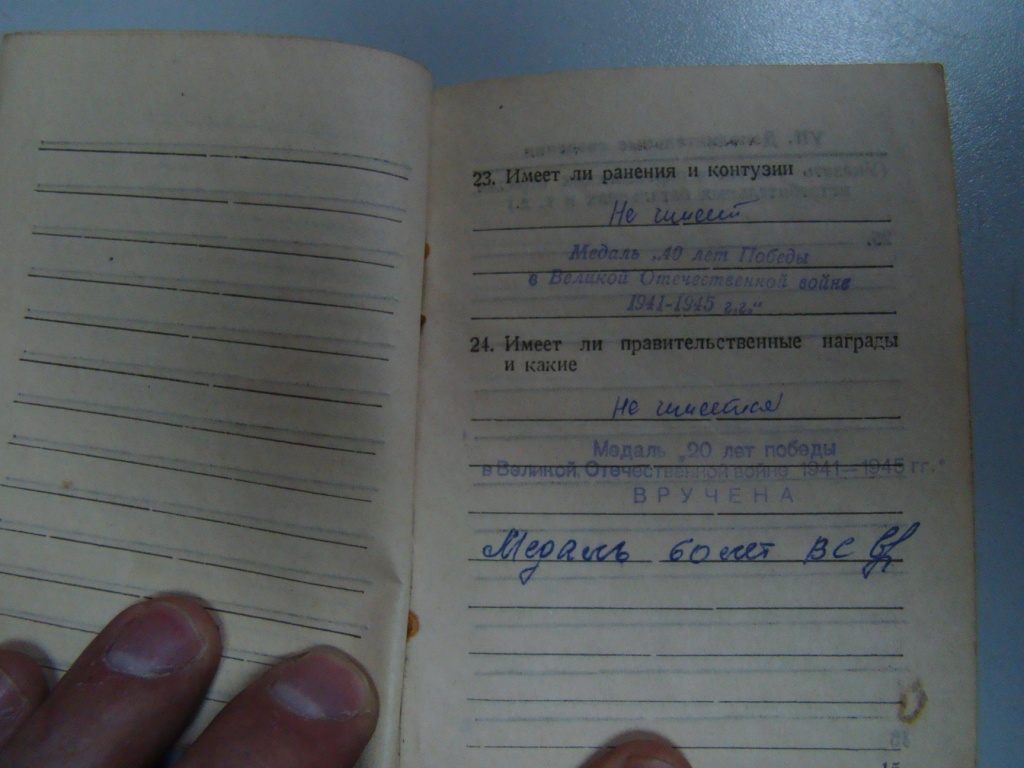 23. Имеет ли ранения и контузии
Не имеет
Медаль „40 лет Победы
в Великой Отечественной войне
1941-1945 г.г.“
24. Имеет ли правительственные награды
и какие
Не имеется
Медаль „20 лет победы
в Великой Отечественной войне 1941—1945 гг.“
ВРУЧЕНА
Медаль 60 лет ВС
15